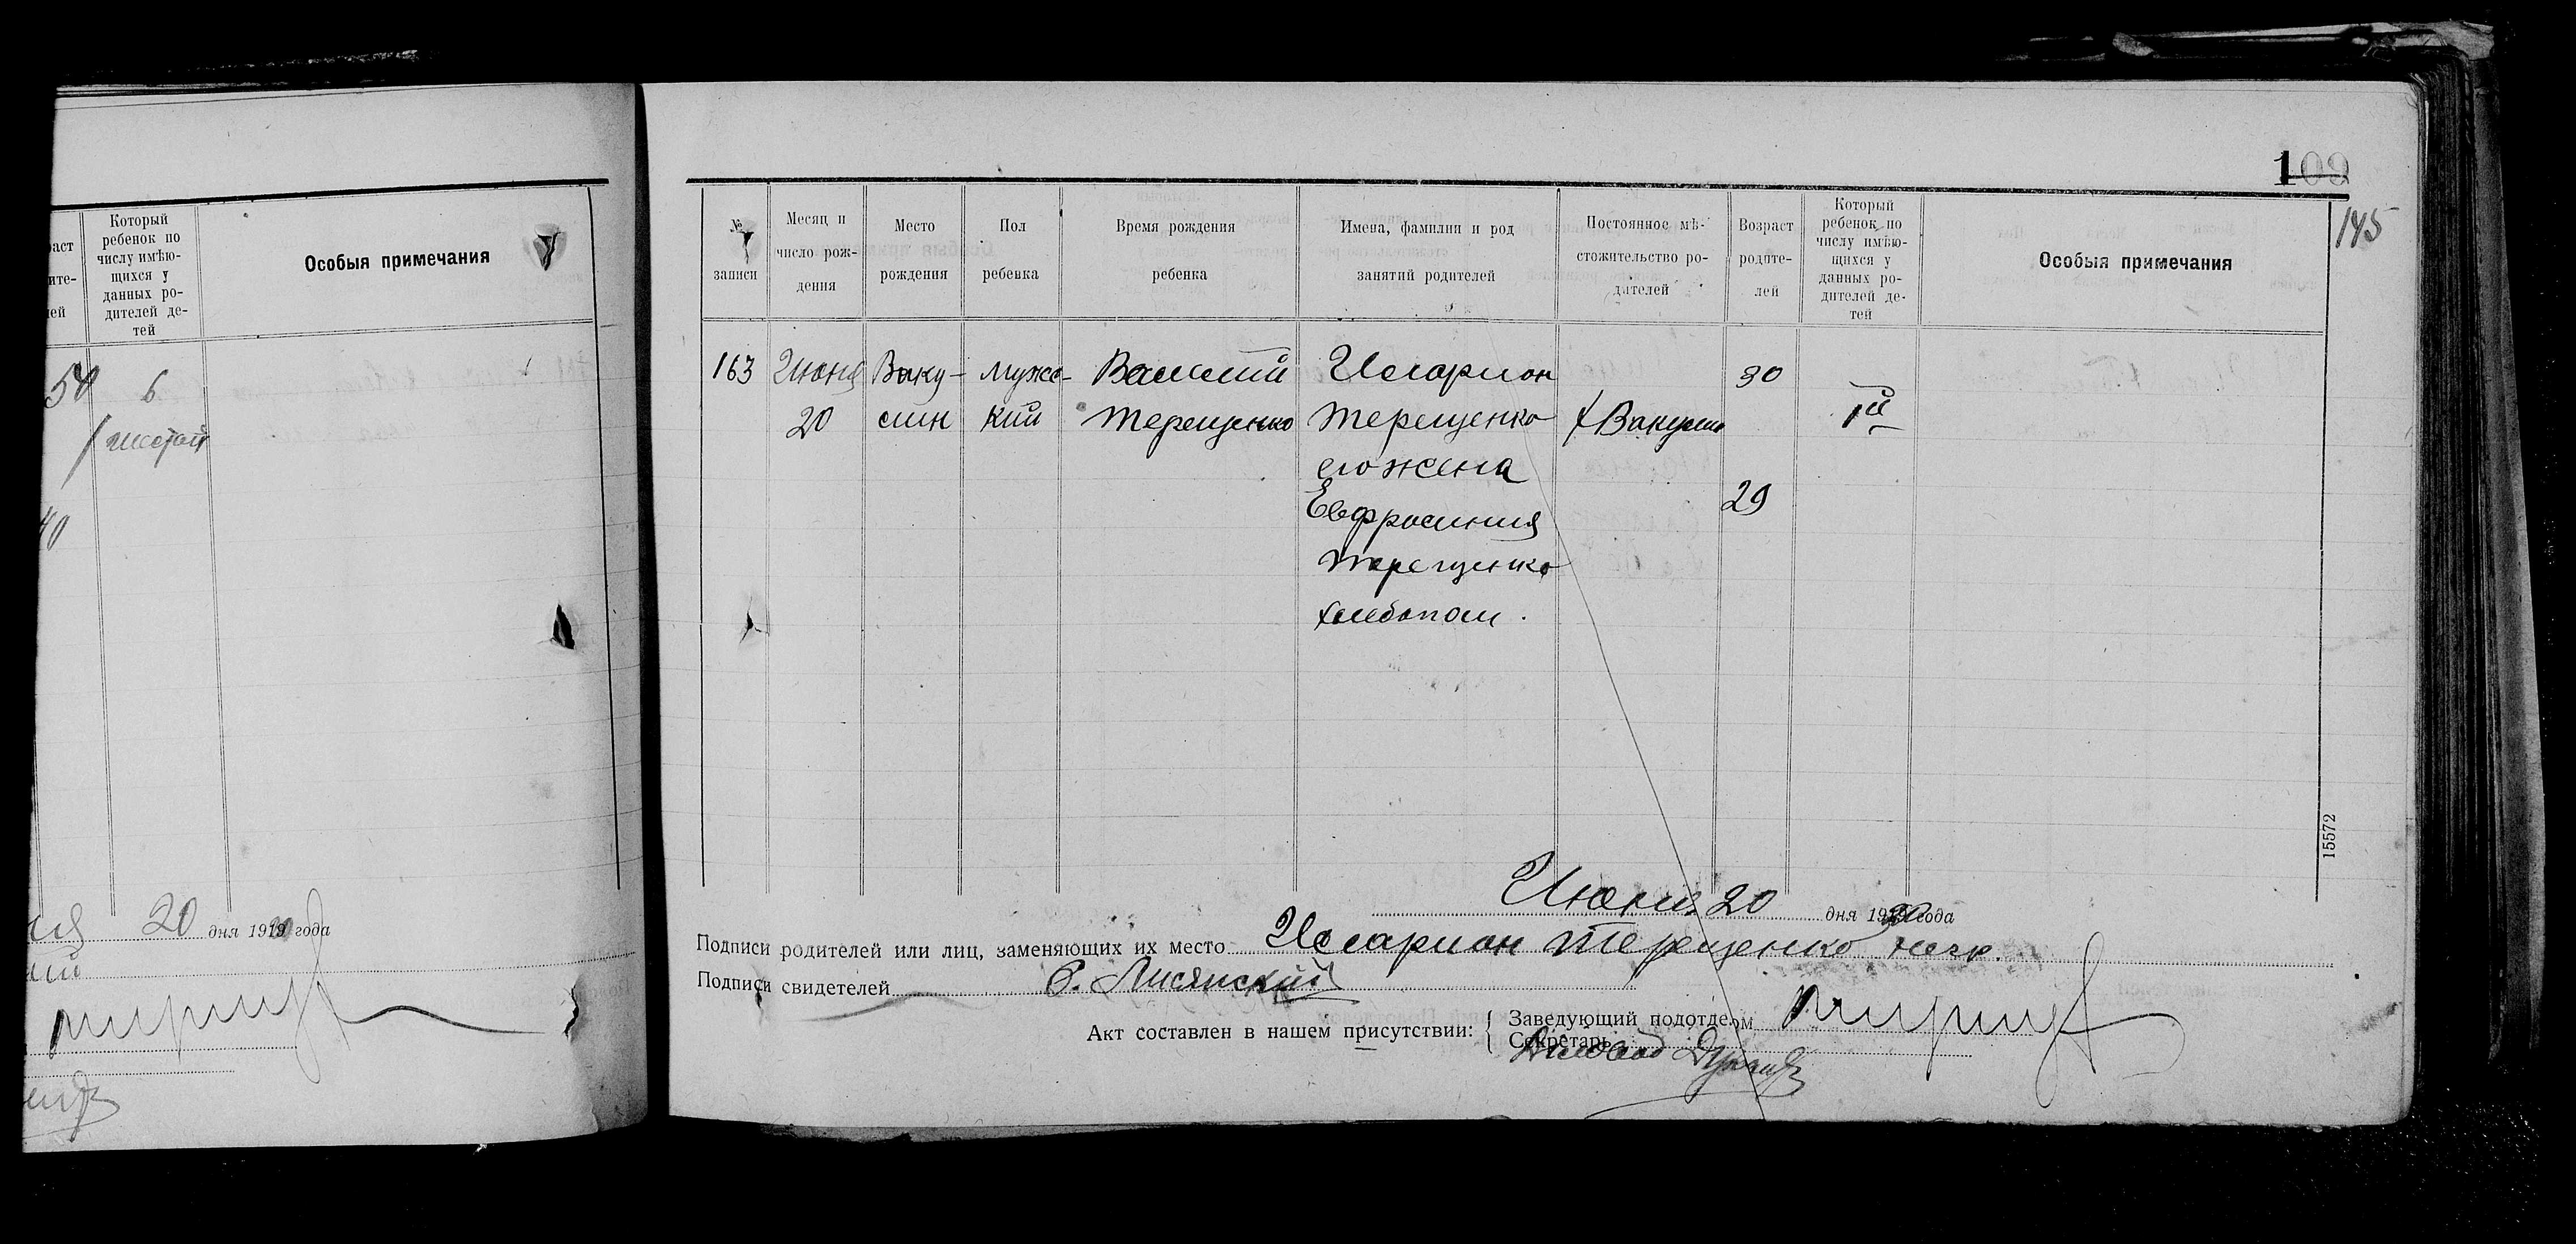 Который
ребенок по
числу имѣю-
щихся у
данных ро-
дителей де-
тей
Особыя примечания
54
6
шестой
40
20 дня 1919 20 года
109
145
№ записи
Месяц и число рож- дения
Место рождения
Пол ребенка
Время рождения ребенка
Имена, фамилии и род занятий родителей
Постоянное мѣ- стожительство ро- дителей
Возраст родите- лей
Который ребенок по числу имѣю- щихся у данных ро- дителей де- тей
Особыя примечания
163 Июня Ваку- мужс- Василий Иларион 30
20 син кий Терещенко Терещенко х Вакусин 1й
его жена
Евфросиния 29
Терещенко
хлебопаш.
15572
Июня 20 дня 1919 20 года
Подписи родителей или лиц, заменяющих их место Иларион Терещенко негр.
Подписи свидетелей С. Лисянский
Акт составлен в нашем присутствии: Заведующий подотделом
Секретарь